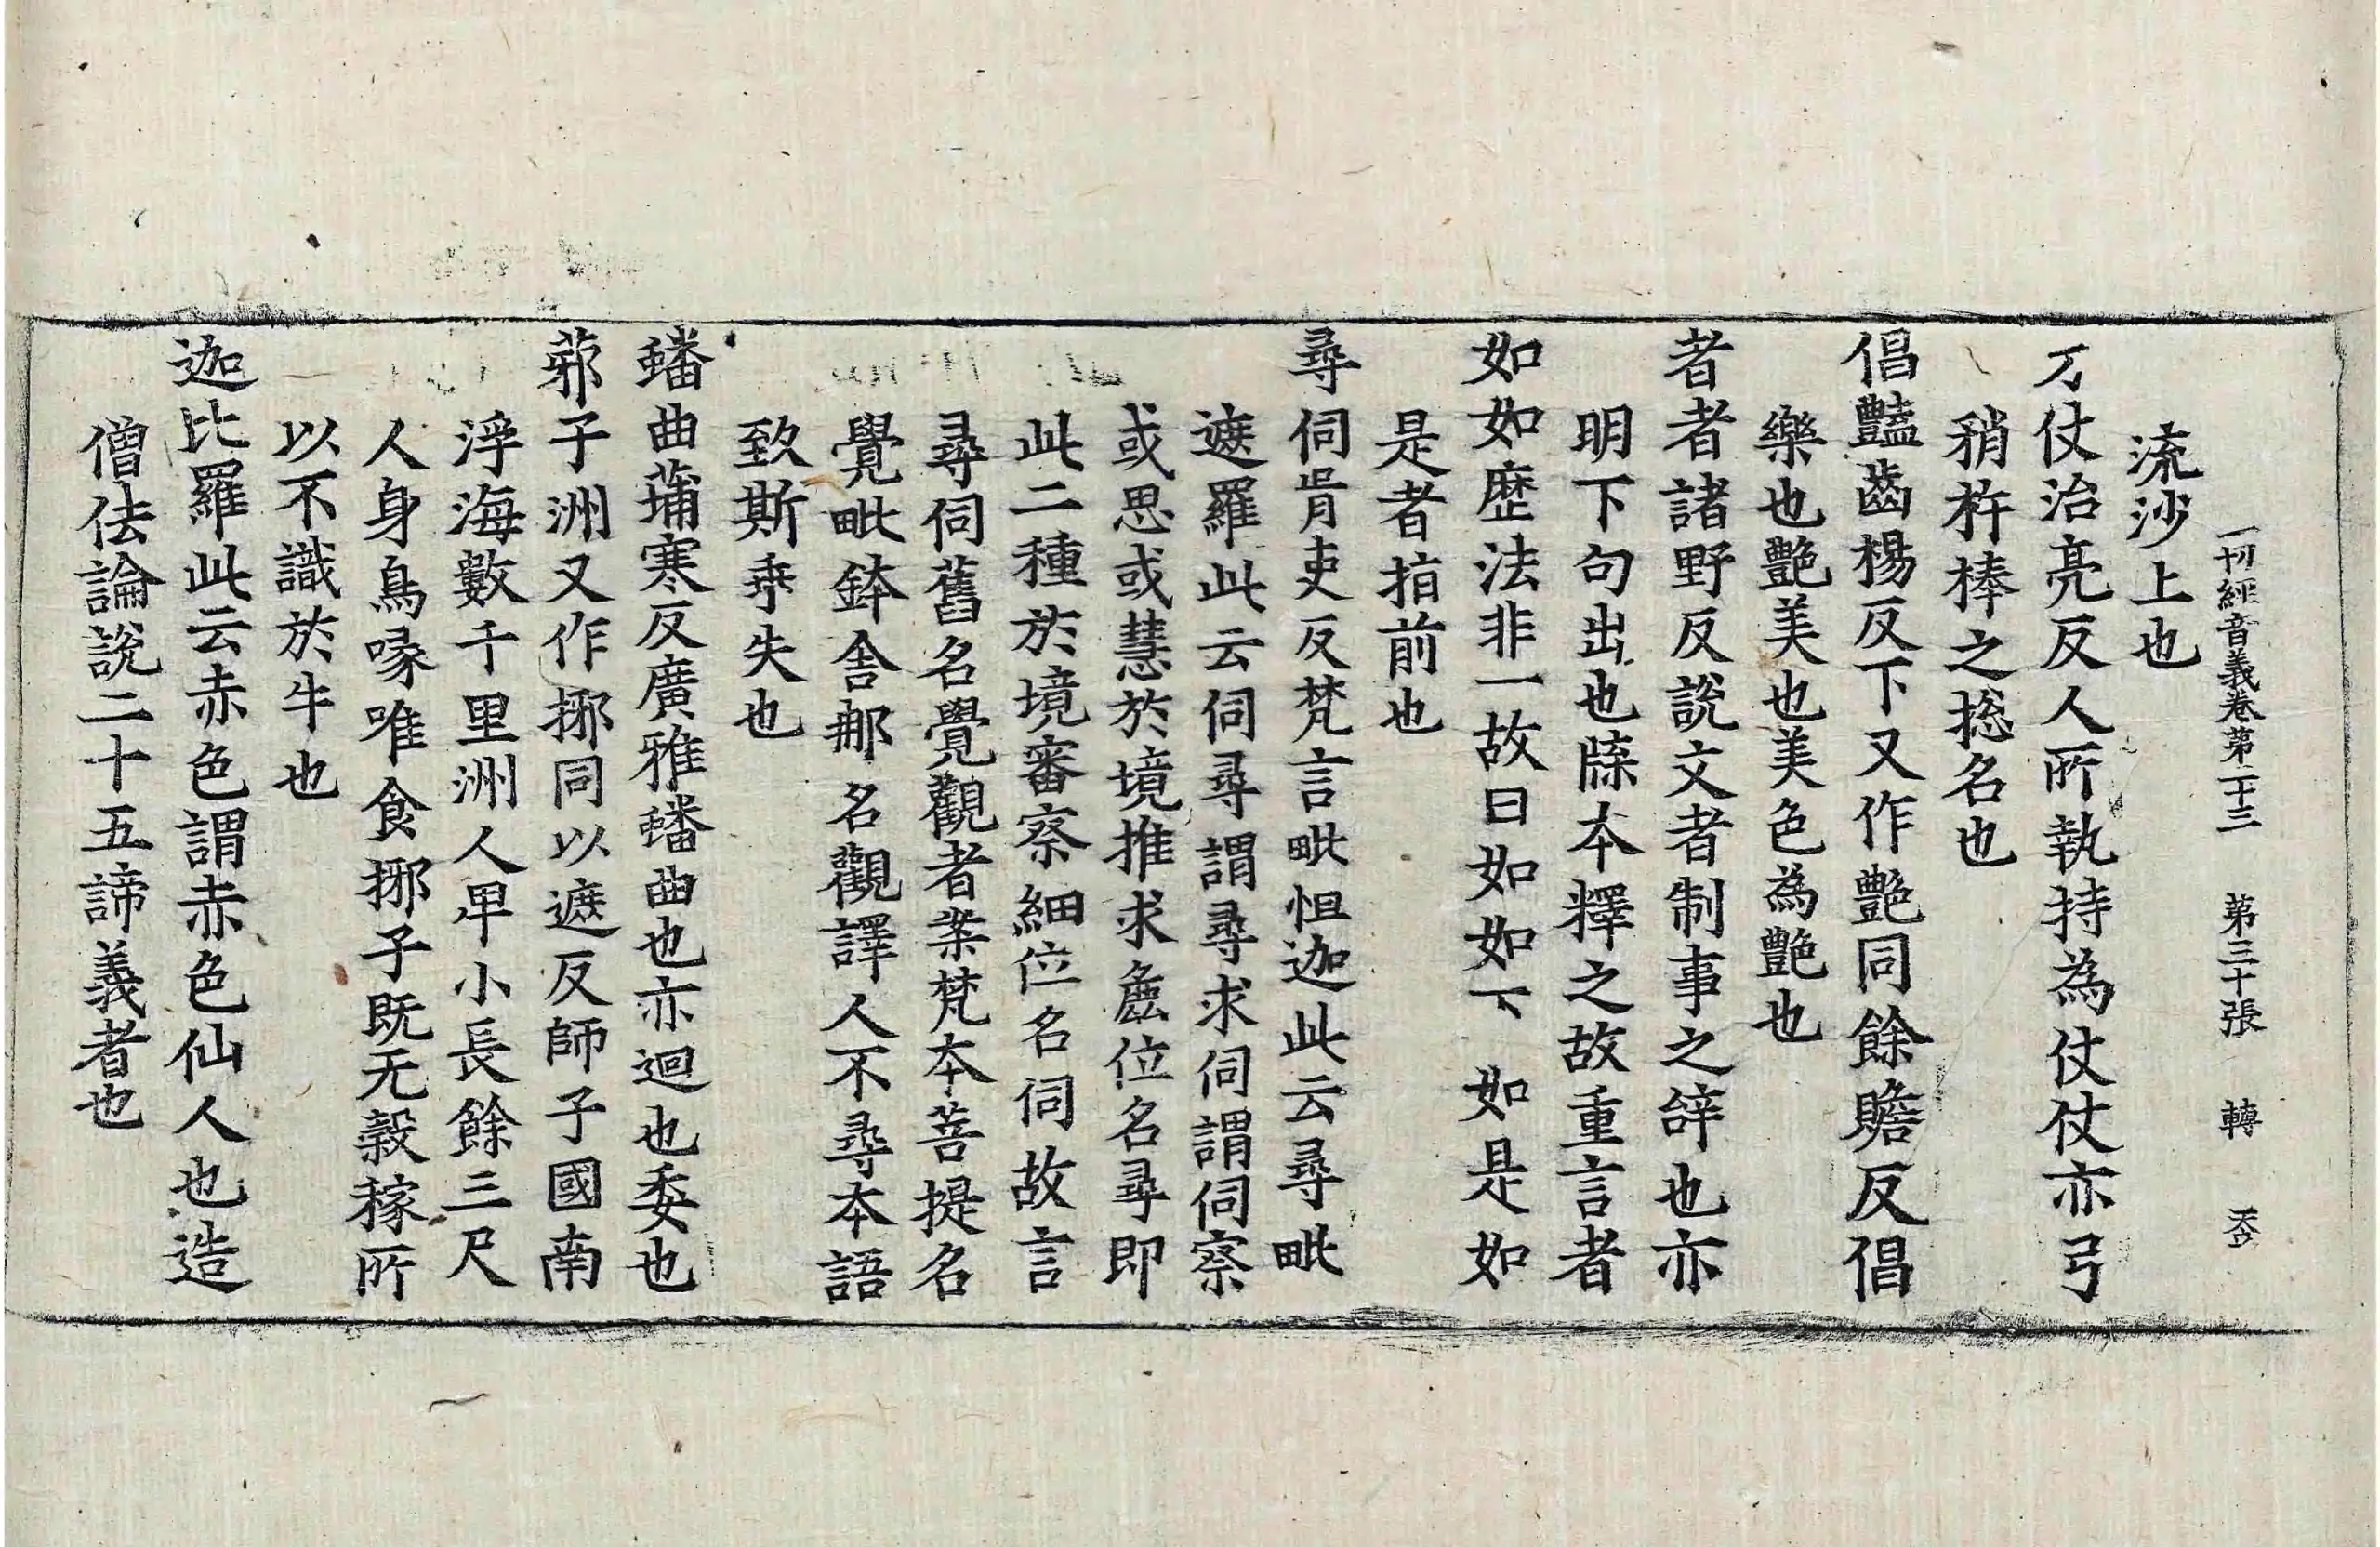 一切經音義卷第二十三 第三十張 轉
流沙上也
刀仗治亮反人所執持為仗仗亦弓
矟杵棒之捴名也
倡豔齒楊反下又作艷同餘贍反倡
樂也艷美也美色為艷也
者者諸野反說文者制事之辝也亦
明下句出也牒本釋之故重言者
如如歷法非一故曰如如下如是如
是者指前也
尋伺胥吏反梵言毗怛迦此云尋毗
遮羅此云伺尋謂尋求伺謂伺察
或思或慧於境推求麁位名尋即
此二種於境審察細位名伺故言
尋伺舊名覺觀者案梵本菩提名
覺毗鉢舍那名觀譯人不尋本語
致斯乖失也
蟠曲蒲寒反廣雅蟠曲也亦迴也委也
䓉子洲又作揶同以遮反師子國南
浮海數千里洲人卑小長餘三尺
人身鳥喙唯食揶子既无穀稼所
以不識於牛也
迦比羅此云赤色謂赤色仙人也造
僧佉論說二十五諦義者也